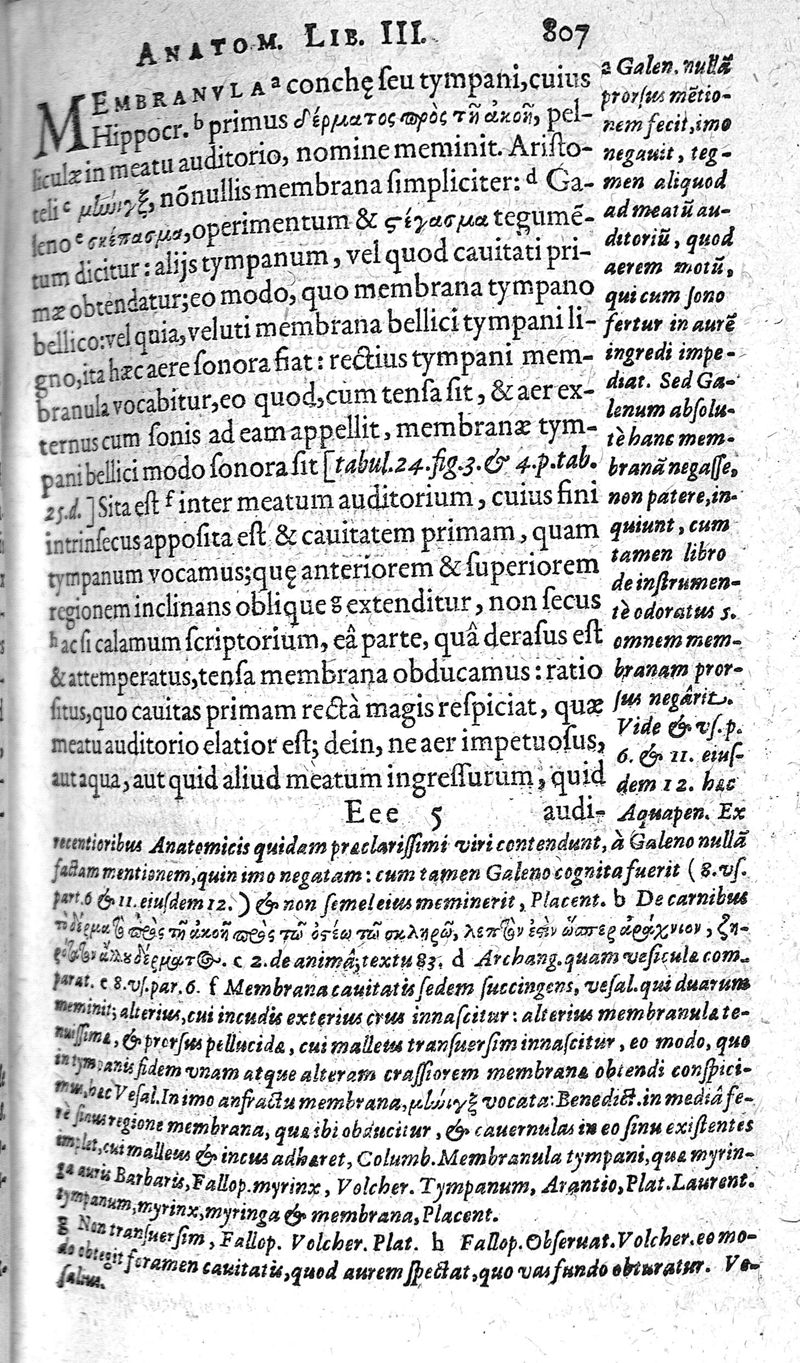 ANATOM. LIB. III. 807
MEMBRANVLA ᵃ conchę ſeu tympani, cuius
Hippocr. ᵇ primus δέρματος πρὸς τῇ ἀκοῇ, pel-
liculæ in meatu auditorio, nomine meminit. Ariſto-
teli ᶜ μῆνιγξ, nōnullis membrana ſimpliciter: ᵈ Ga-
leno ᵉ σκέπασμα, operimentum & ςέγασμα tegumē-
tum dicitur: alijs tympanum, vel quod cauitati pri-
mæ obtendatur; eo modo, quo membrana tympano
bellico: vel quia, veluti membrana bellici tympani li-
gno, ita hæc aere ſonora fiat: rectius tympani mem-
branula vocabitur, eo quod, cum tenſa ſit, & aer ex-
ternus cum ſonis ad eam appellit, membranæ tym-
pani bellici modo ſonora ſit [tabul. 24. fig. 3. & 4. p. tab.
25. d.] Sita eſt ᶠ inter meatum auditorium, cuius fini
intrinſecus appoſita eſt & cauitatem primam, quam
tympanum vocamus; quę anteriorem & ſuperiorem
regionem inclinans oblique ᵍ extenditur, non ſecus
ʰ ac ſi calamum ſcriptorium, eâ parte, quâ deraſus eſt
& attemperatus, tenſa membrana obducamus: ratio
ſitus, quo cauitas primam rectà magis reſpiciat, quæ
meatu auditorio elatior eſt; dein, ne aer impetuoſus,
aut aqua, aut quid aliud meatum ingreſſurum, quid
Eee 5 audi-
a Galen. nullā
prorſus mētio-
nem fecit, imo
negauit, teg-
men aliquod
ad meatū au-
ditoriū, quod
aerem motū,
qui cum ſono
fertur in aurē
ingredi impe-
diat. Sed Ga-
lenum abſolu-
tè hanc mem-
branā negaſſe,
non patere, in-
quiunt, cum
tamen libro
de inſtrumen-
tè odoratus 5.
omnem mem-
branam pror-
ſus negârit.
Vide & vſ. p.
6. & 11. eiuſ-
dem 12. hæc
Aquapen. Ex
recentioribus Anatomicis quidam præclariſſimi viri contendunt, à Galeno nullā
factam mentionem, quin imo negatam: cum tamen Galeno cognita fuerit (8. vſ.
part. 6 & 11. eiuſdem 12.) & non ſemel eius meminerit, Placent. b De carnibus
τὸ δέρμα πρὸς τῇ ἀκοῇ πρὸς τῷ ὀςέῳ τῷ σκληρῷ, λεπτὸν ἐςὶν ὥσπερ ἀράχνιον, ξη-
ρότατον ἄλλου δέρματος. c 2. de animâ, textu 83. d Archang. quam veſiculæ com-
parat. e 8. vſ. par. 6. f Membrana cauitatis ſedem ſuccingens, veſal. qui duarum
meminit; alterius, cui incudis exterius crus innaſcitur: alterius membranulæ te-
nuiſſimæ, & prorſus pellucidæ, cui malleus tranſuerſim innaſcitur, eo modo, quo
in tympanis fidem vnam atque alteram craſſiorem membranæ obtendi conſpici-
mus, hæc Veſal. In imo anfractu membrana, μῆνιγξ vocata: Benedict. in mediâ fe-
rè ſinus regione membrana, quæ ibi obducitur, & cauernulas in eo ſinu exiſtentes
implet, cui malleus & incus adhæret, Columb. Membranula tympani, quæ myrin-
ga auris Barbaris, Fallop. myrinx, Volcher. Tympanum, Arantio, Plat. Laurent.
tympanum, myrinx, myringa & membrana, Placent.
g Non tranſuerſim, Fallop. Volcher. Plat. h Fallop. Obſeruat. Volcher. eo mo-
do obtegit foramen cauitatis, quod aurem ſpectat, quo vas fundo obturatur. Ve-
ſalius.